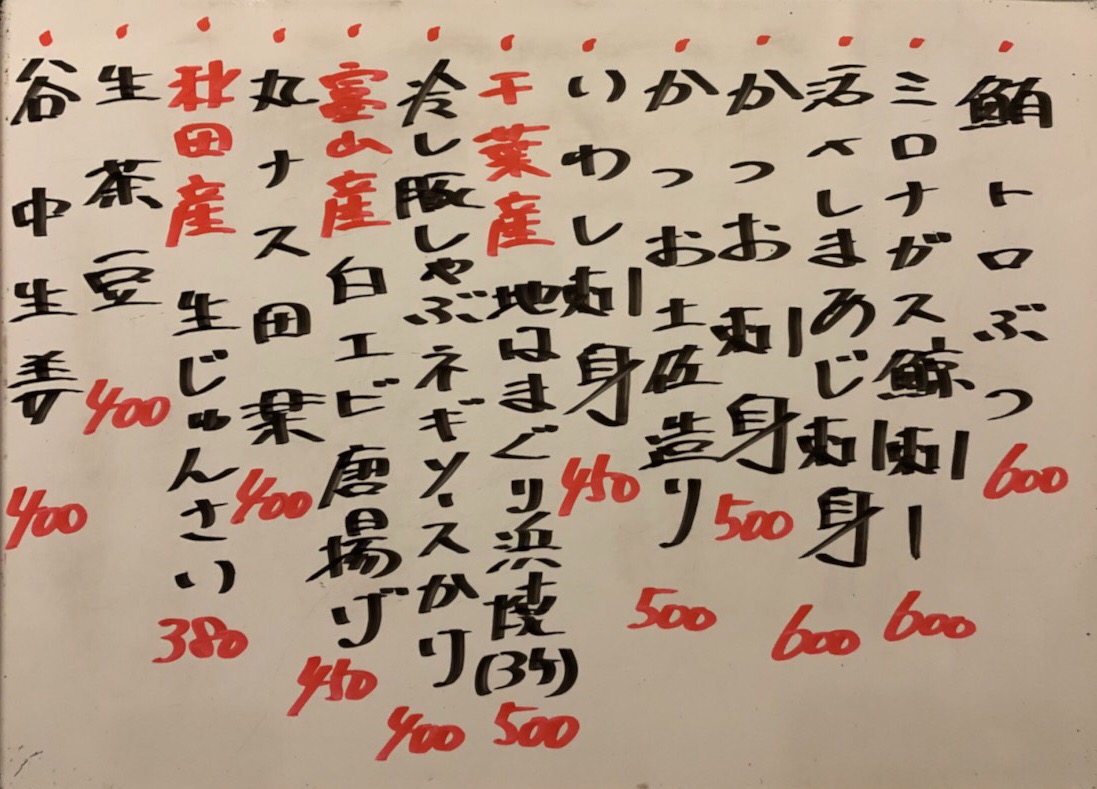 鮪トロぶつ 600
ミロナガス鯨刺し 600
活〆しまあじ刺身 600
かつお刺身 500
かつお土佐造り 500
いわし刺身 450
千葉産地はまぐり浜焼(3ケ) 500
冷し豚しゃぶネギソースかけ 400
富山産白エビ唐揚げ 450
丸ナス田楽 400
秋田産生じゅんさい 380
生茶豆 400
谷中生姜 400